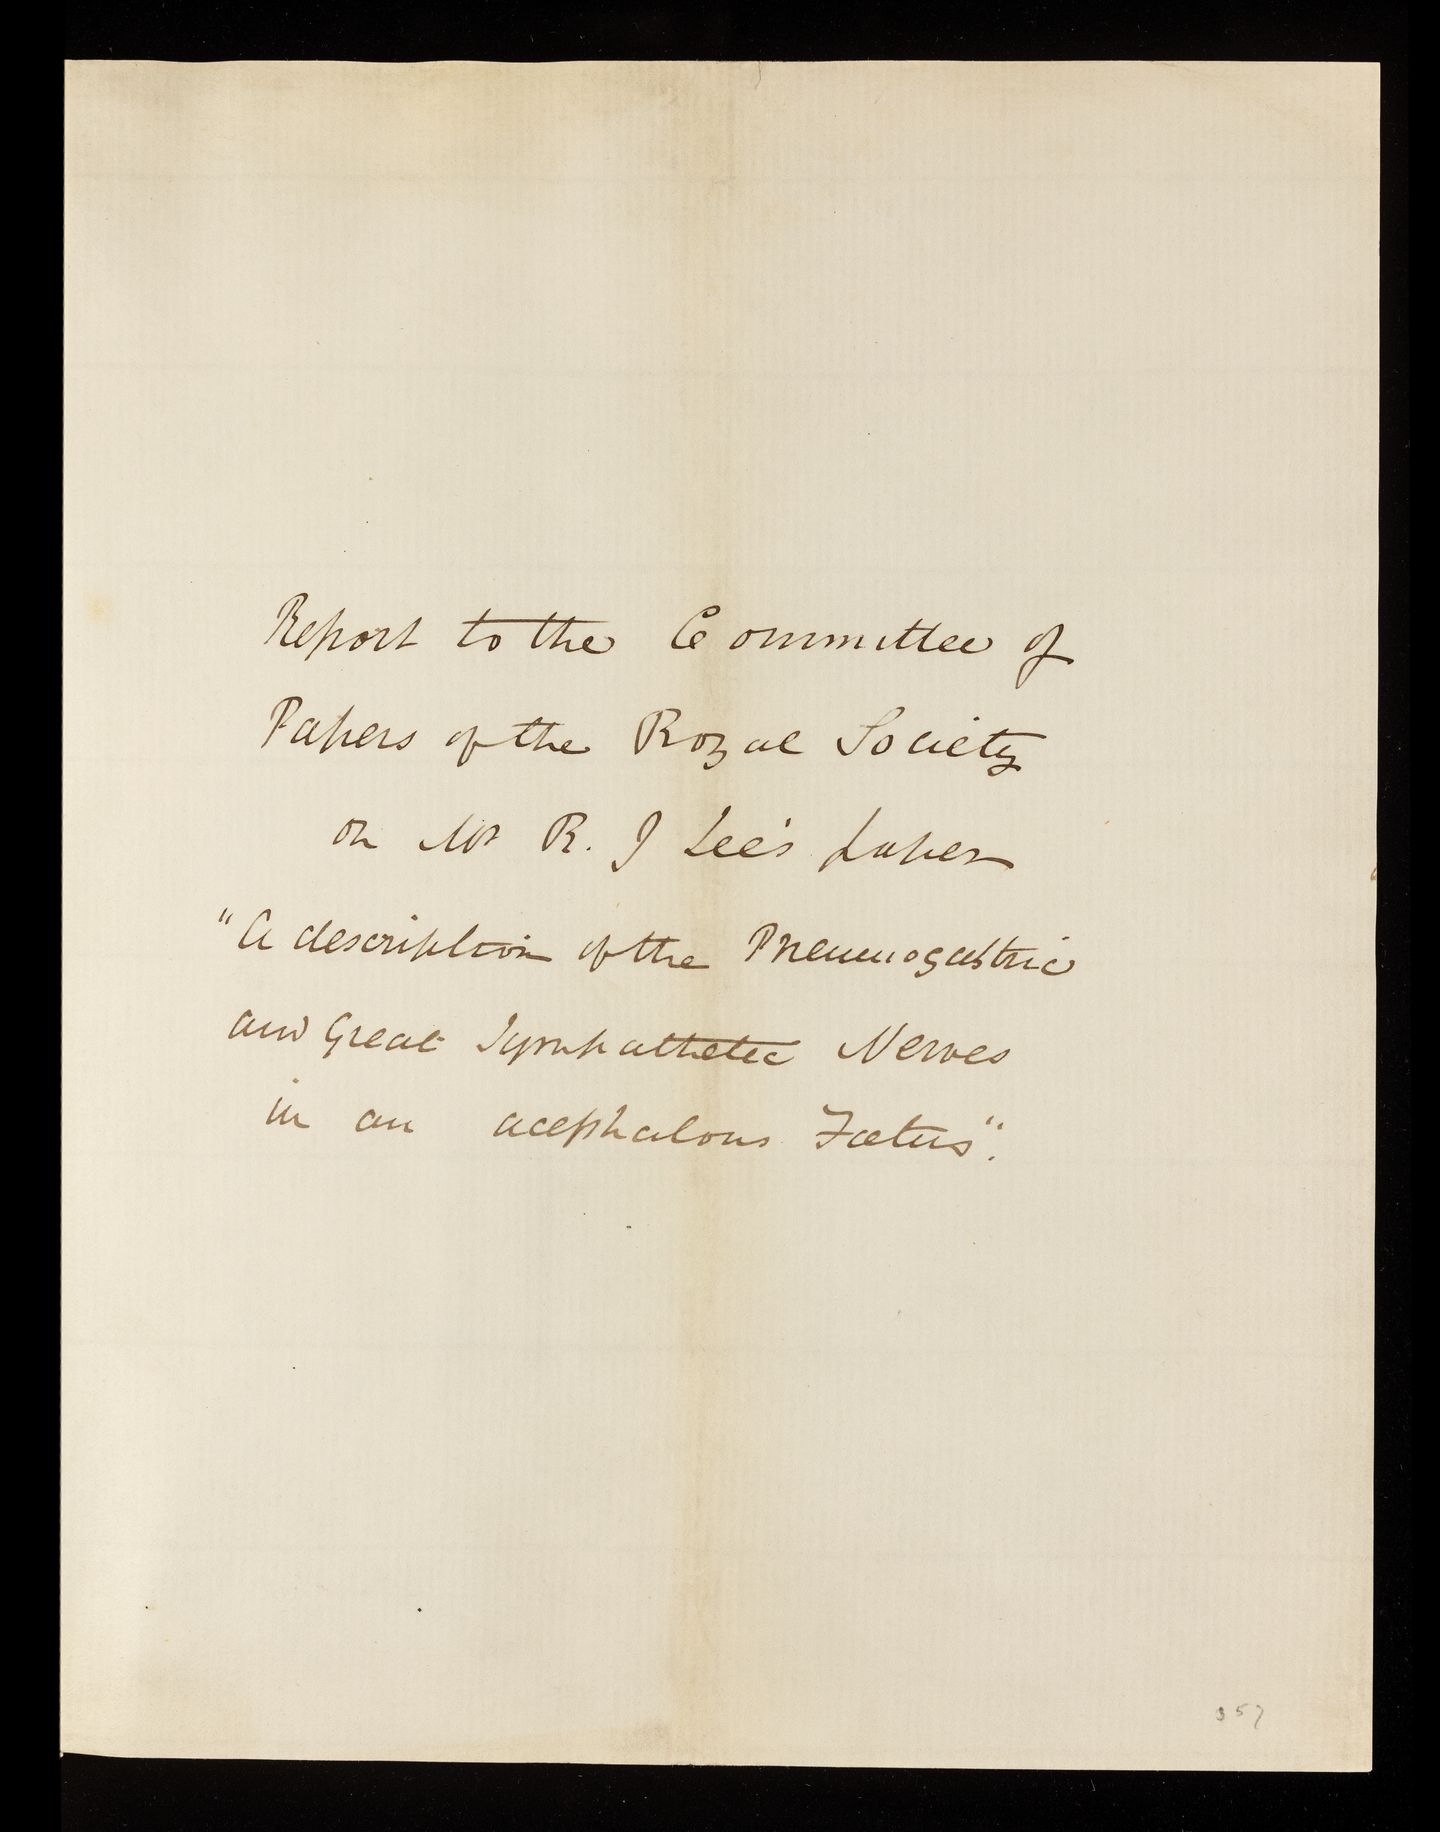 Report to the Committee of
Papers of the Royal Society
on Mr R. J Lee's paper
"A description of the Pneumogastric
and Great Sympathetic Nerves
in an acephalous Foetus".
357